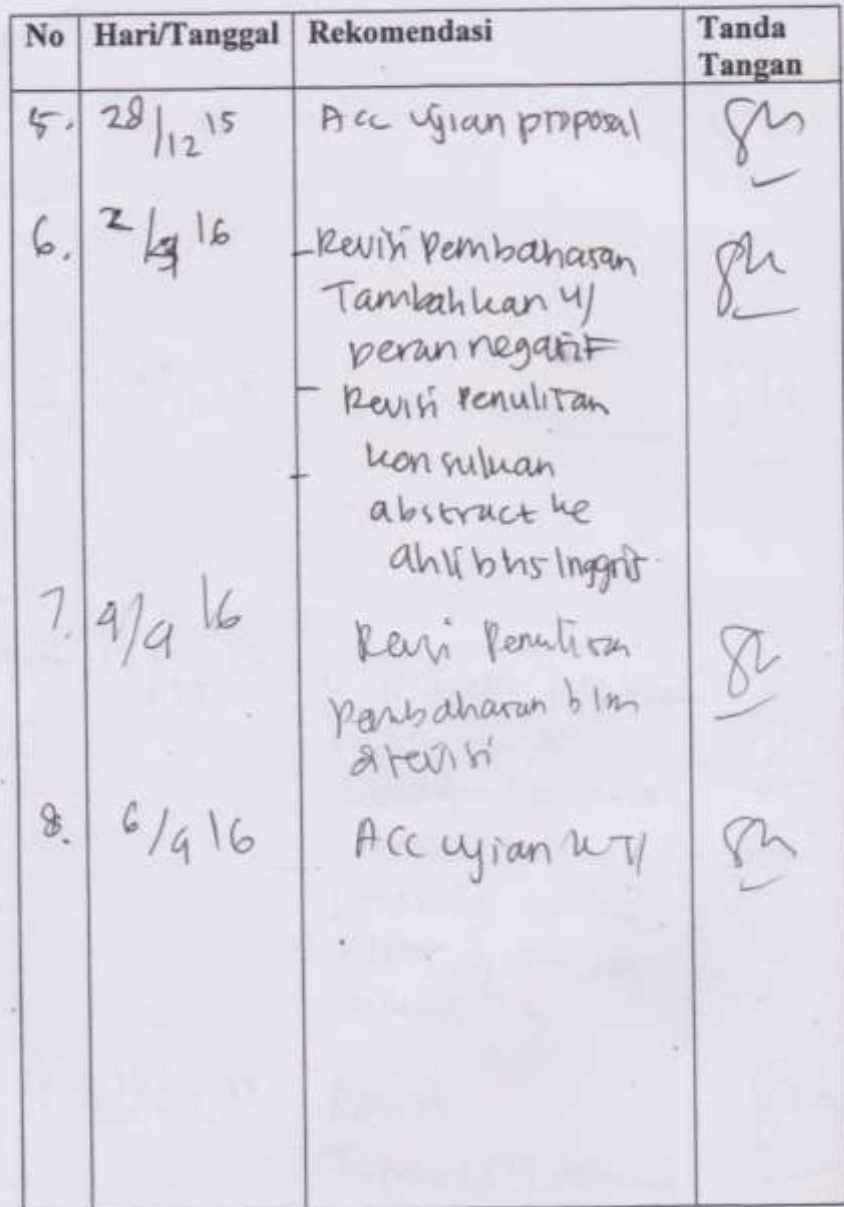 No Hari/Tanggal Rekomendasi Tanda Tangan
5. 28/12 15 Acc Ujian proposal
6. 2/ 16 - Revisi Pembahasan
Tambahkan u/
peran negatif
- Revisi Penulisan
- konsulkan
abstract ke
ahli bhs Inggris.
7. 4/9 16 Revisi Penulisan
Pembahasan blm
direvisi
8. 6/9 16 Acc ujian KTI